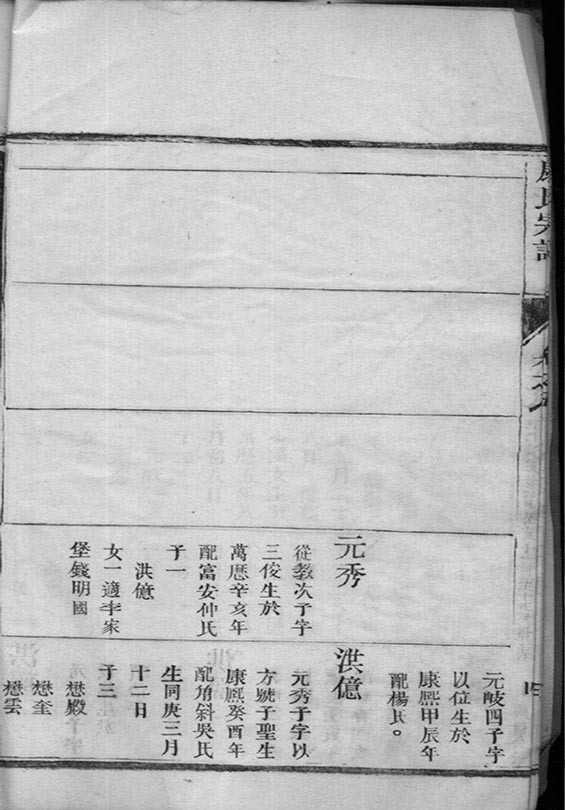 氏宗譜
元岐四子字
以位生於
康熙甲辰年
配楊氏。
元秀
從教次子字
三俊生於
萬曆辛亥年
配富安仲氏
子一
洪億
女一適李家
堡錢明國
洪億
元秀子字以
方號子聖生
康熙癸酉年
配角斜吳氏
生同庚三月
十二日
子三
懋殿
懋奎
懋雲